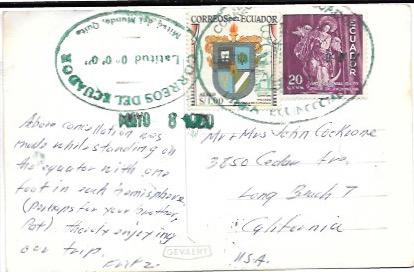 Mitad del Mundo, Quito
Latitud 0° 0' 0"
CORREOS DEL ECUADOR
CORREOS ECUADOR
AEREO
S/1.00
ECUADOR
20
CTVS.
MAYO 8
Above cancellation was
made while standing on
the equator with one
foot in each hemisphere.
(Perhaps for your brother,
Pat) Thoroly enjoying
our trip.
Fritz
GEVAERT
Mr & Mrs John Cochrane
3850 Cedar Ave,
Long Beach 7
California
USA.